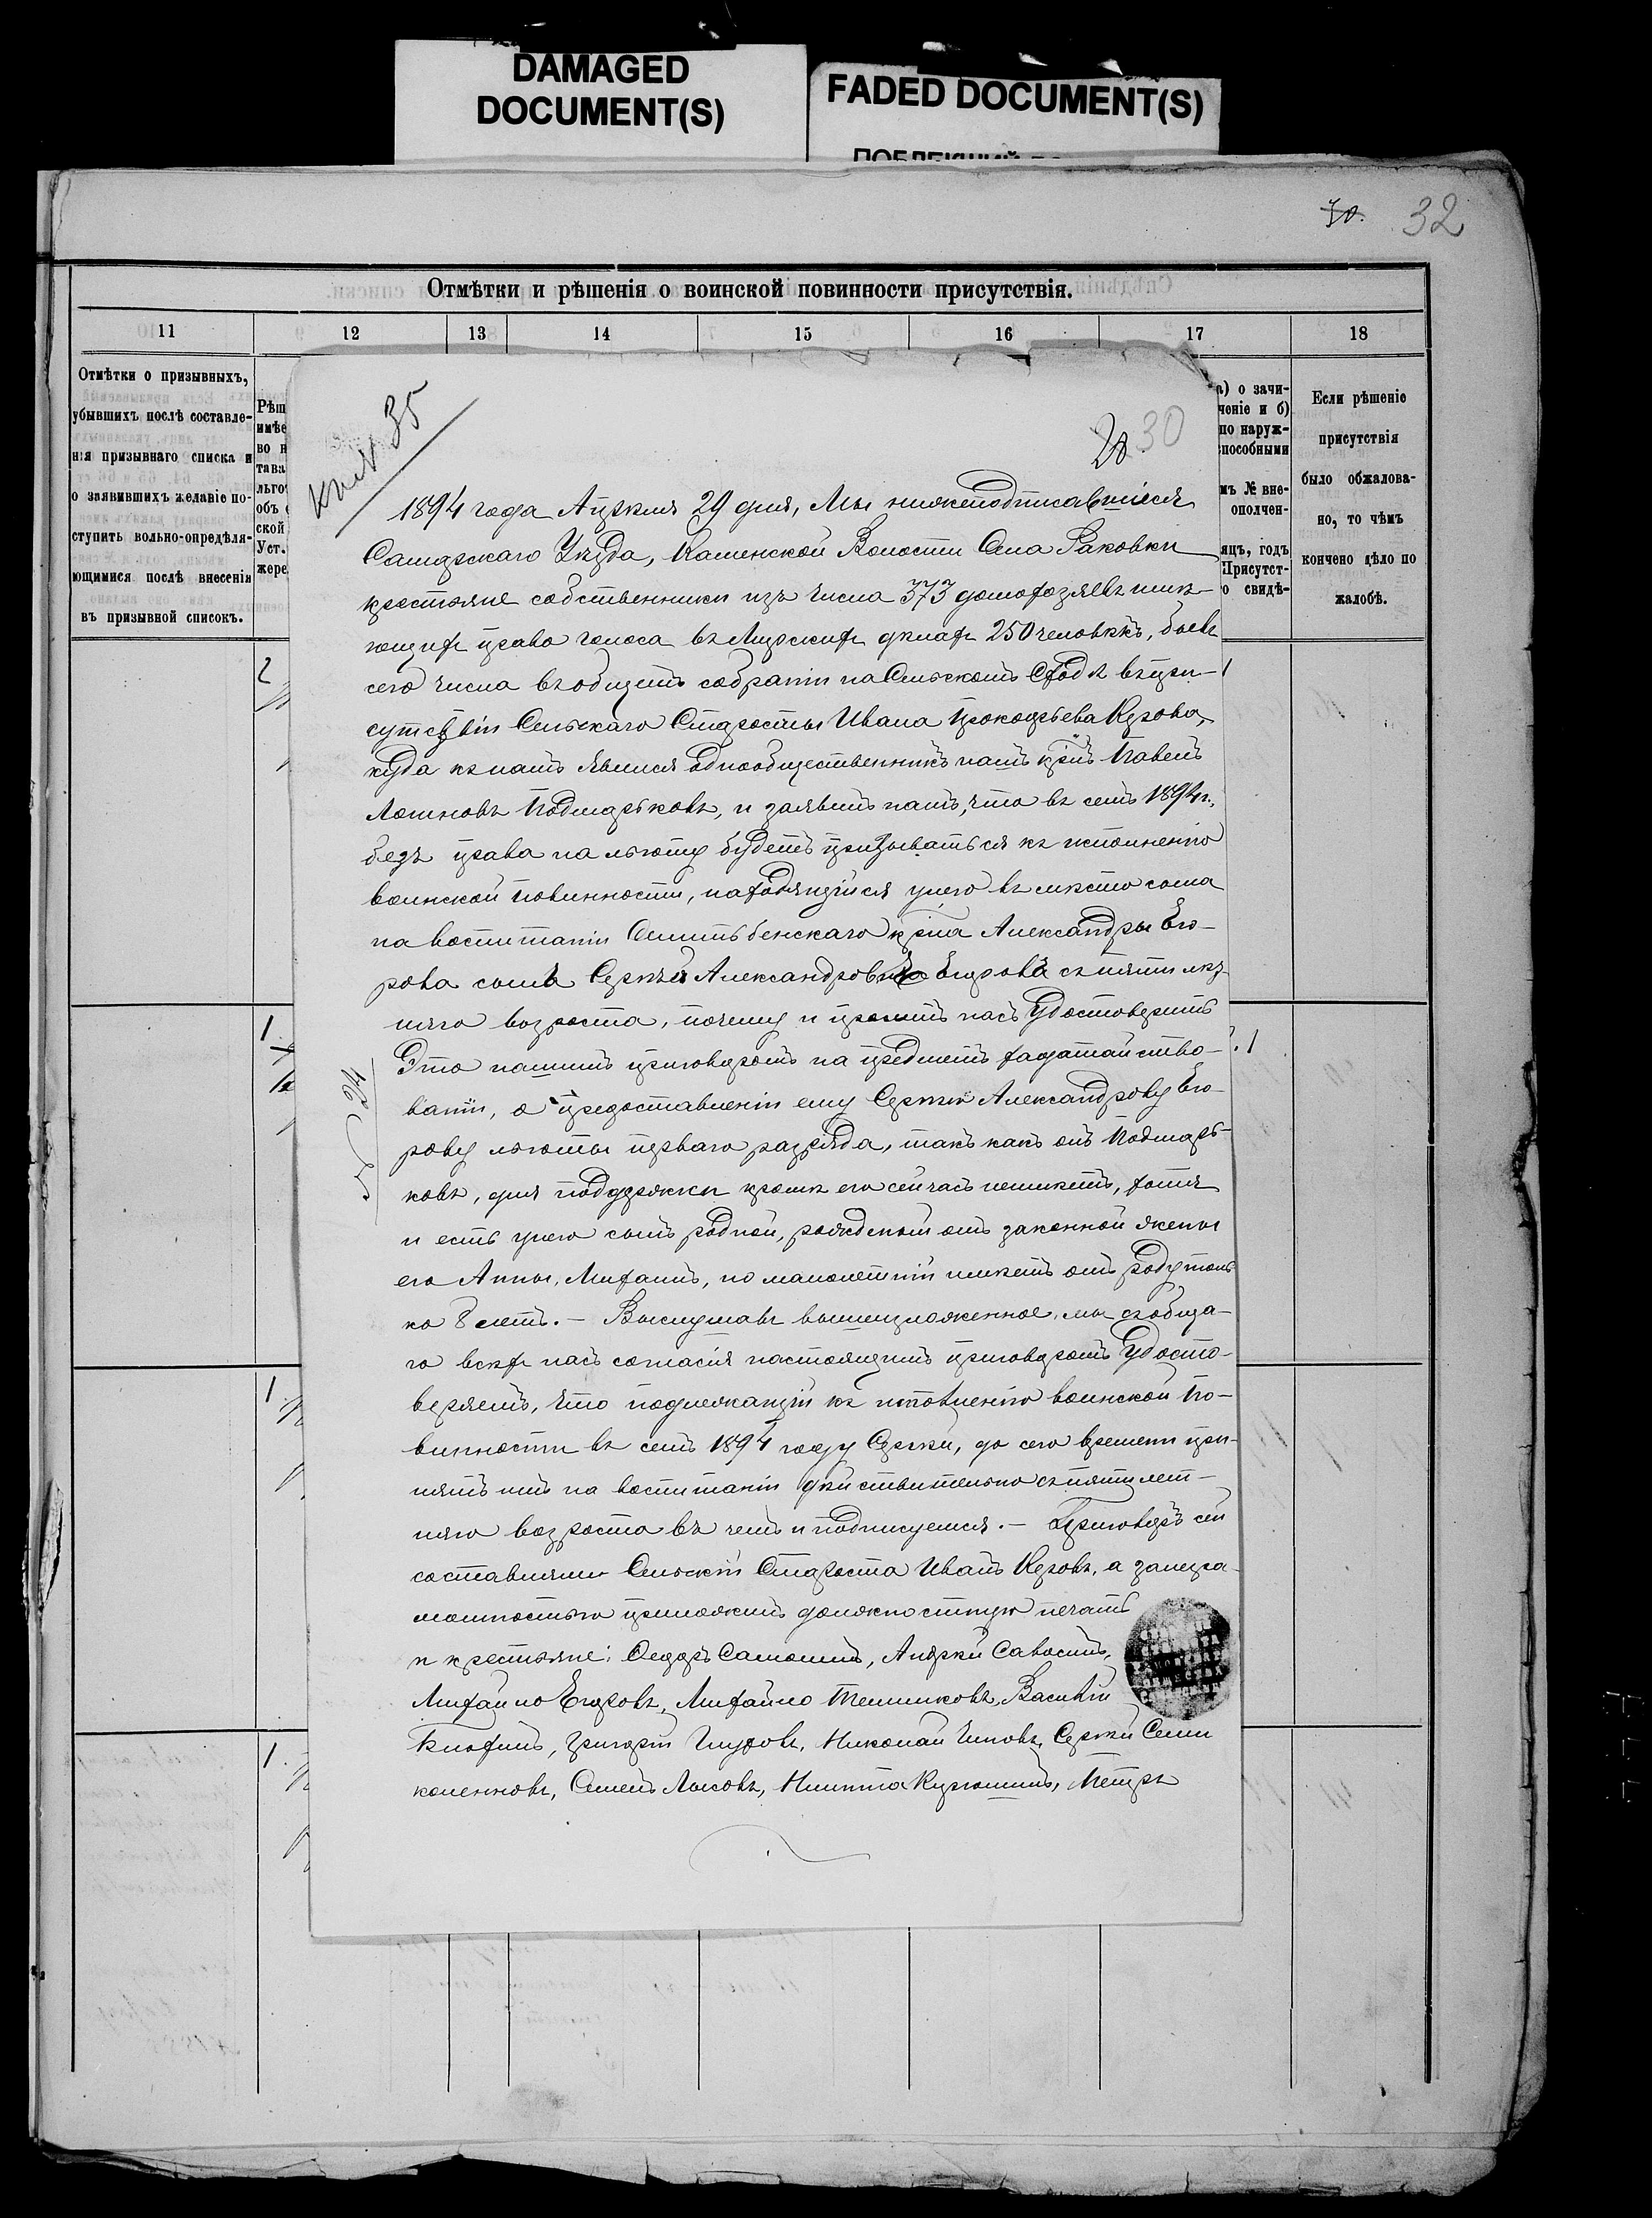 DAMAGED
DOCUMENT(S)
FADED DOCUMENT(S)
32
Отмѣтки и рѣшенія о воинской повинности присутствія.
11 12 13 14 15 16 17 18
Отмѣтки о призывныхъ,
убывшихъ послѣ составле-
нія призывнаго списка и
о заявившихъ желаніе по-
ступить вольно-опредѣля-
ющимися послѣ внесенія
въ призывной списокъ.
Рѣш
имѣе
во н
тава
льго
объ
ской
Уст.
жере
а) о зачи-
ченіе и б)
по наруж-
способными
мъ № вне-
ополчен-
яцъ, годъ
Присутст-
о свидѣ-
Если рѣшеніе
присутствія
было обжалова-
но, то чѣмъ
кончено дѣло по
жалобѣ.
35
30
1894 года Апрѣля 29 дня, Мы нижеподписавшіеся
Самарскаго Уѣзда, Каменской Волости Села Раковки
крестьяне собственники изъ числа 373 домохозяевъ имѣ-
ющих право голоса въ Мірских дѣлах 250 человѣкъ, бывъ
сего числа въ общемъ собраніи на Сельскомъ Сходѣ въ при-
сутствіи Сельскаго Старосты Ивана Прокофьева Керова,
куда къ намъ явился однообщественникъ нашъ кр͠нъ Павелъ
Логиновъ Подмарьковъ, и заявилъ намъ, что въ семъ 1894 г.,
безъ права на льготу будетъ призываться къ исполненію
воинской повинности, находящійся у него въ мѣсто сына
на воспитаніи кр͠на Александры Его-
рова сынъ Сергѣй Александровъ Егоровъ съ пяти лѣт-
няго возроста, почему и проситъ насъ Удостоверить
Это нашимъ приговоромъ на предметъ хадатайство-
ваніи, о предоставленіи ему Сергѣю Александрову Его-
рову льготы перваго разряда, такъ какъ онъ Подмарь-
ковъ, для поддержки кромѣ его сейчасъ неимѣетъ, хотя
и есть у него сынъ родной, рожденый отъ законной жены
его Анны, Михаилъ, но малолетній имѣетъ отъ роду толь
ко 8 летъ. – Выслушавъ вышеизложенное, мы съ обща-
го всѣх насъ согласія настоящимъ приговоромъ Удосто-
веряемъ, что подлежащій къ исполненію воинской по-
винности въ семъ 1894 году Сергѣй, до сего времени при-
нятъ имъ на воспитаніи дѣйствительно съ пятилет-
няго возроста въ чемъ и подписуемся. – Приговоръ сей
составляли Сельскій Староста Иванъ Керовъ, а за негра-
мотностью приложилъ должностную печать
и крестьяне: Федоръ Самошинъ, Андрей Савосинъ,
Михайло Егоровъ, Михайло Темниковъ, Василій
Григорій Николай Сергѣй Семи
коленновъ, Семенъ Лысовъ, Никита Курюшинъ, Петръ